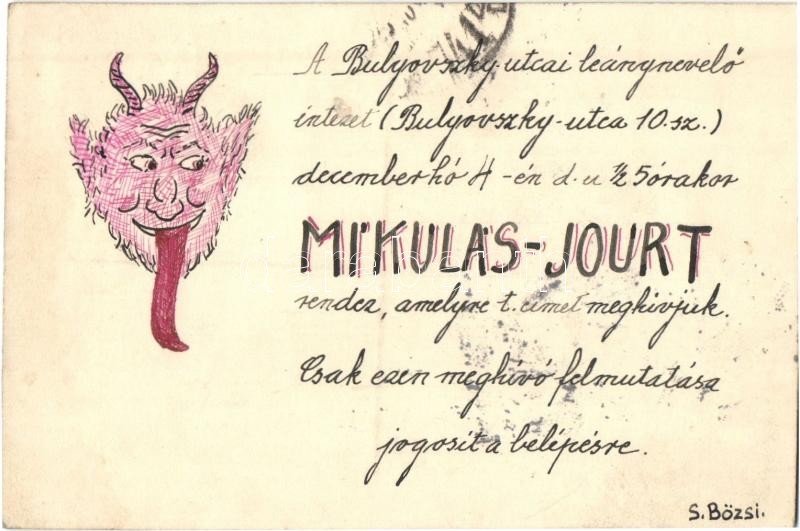 A Bulyovszky-utcai leánynevelő
intézet (Bulyovszky-utca 10.sz.)
decemberhó 4-én d.u ½ 5 órakor
MIKULÁS-JOURT
rendez, amelyre t. cimet meghivjuk.
Csak ezen meghívó felmutatása
jogosit a belépésre.
S. Bözsi.